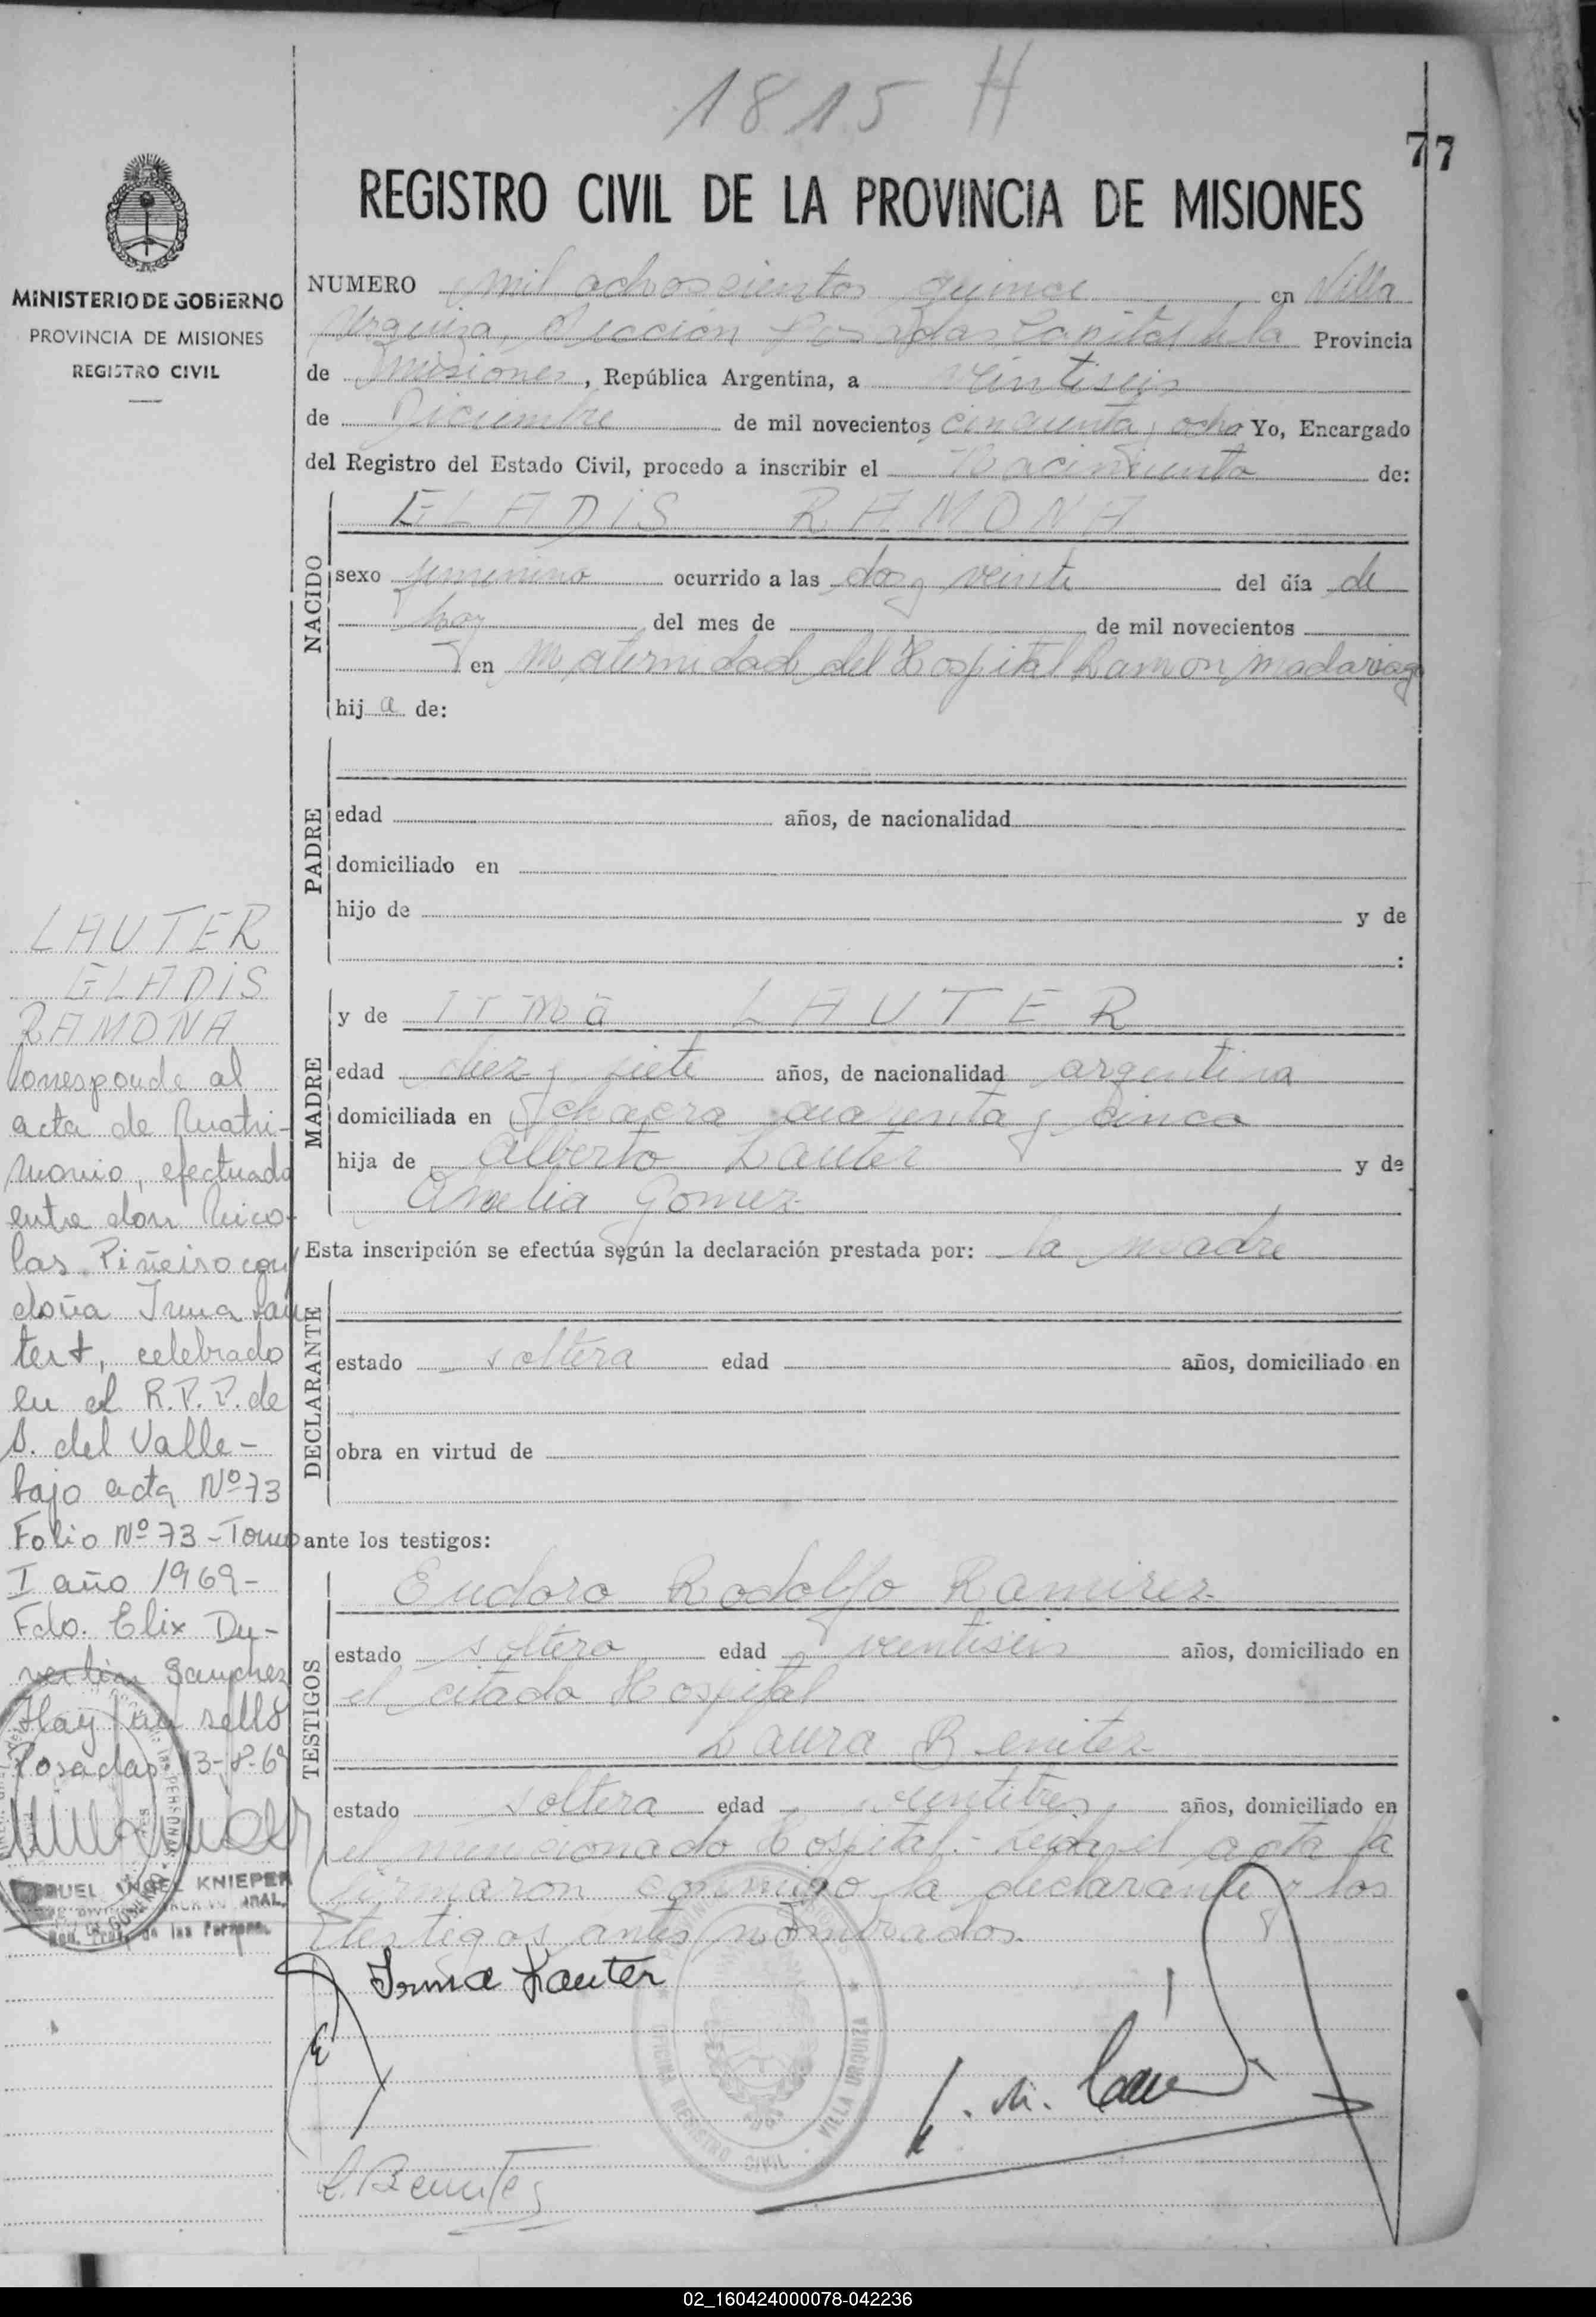 1815 H
77
MINISTERIO DE GOBIERNO
PROVINCIA DE MISIONES
REGISTRO CIVIL
REGISTRO CIVIL DE LA PROVINCIA DE MISIONES
NUMERO mil achoscientos quince en Villa
Urquiza, Sección Posadas Capital de la Provincia
de Misiones, República Argentina, a veintiseis
de Diciembre de mil novecientos cincuenta y ocho Yo, Encargado
del Registro del Estado Civil, procedo a inscribir el Nacimiento de:
NACIDO
ELADIS RAMONA
sexo femenino ocurrido a las dos y veinte del día de
hoy del mes de de mil novecientos
en Maternidad del Hospital Ramon Madariaga
hij a de:
PADRE
edad años, de nacionalidad
domiciliado en
hijo de y de
:
MADRE
y de Irma LAUTER
edad diez y siete años, de nacionalidad argentina
domiciliada en Chacra cuarenta y cinco
hija de Alberto Lauter y de
Amelia Gomez
Esta inscripción se efectúa según la declaración prestada por: la madre
DECLARANTE
estado soltera edad años, domiciliado en
obra en virtud de
ante los testigos:
TESTIGOS
Eudoro Rodolfo Ramirez
estado soltero edad veintiseis años, domiciliado en
el citado Hospital
Laura Benitez
estado soltera edad veintitres años, domiciliado en
el mencionado Hospital.- Leida el acta la
firmaron conmigo la declarante y los
testigos antes nombrados.
Irma Lauter
L. Benitez
OFICINA REGISTRO CIVIL · VILLA URQUIZA
LAUTER
ELADIS
RAMONA
Corresponde al
acta de Matri-
monio, efectuado
entre don Nico-
las Piñeiro con
doña Irma Lau
tert, celebrado
en el R.P.P. de
A. del Valle-
bajo acta Nº 73
Folio Nº 73 - Tomo
I año 1969-
Fdo. Elix Du-
verlin Sanchez
Hay un sello
Posadas 13-8-69
ANGEL KNIEPER
Reg. Prov. de las Personas
02_160424000078-042236